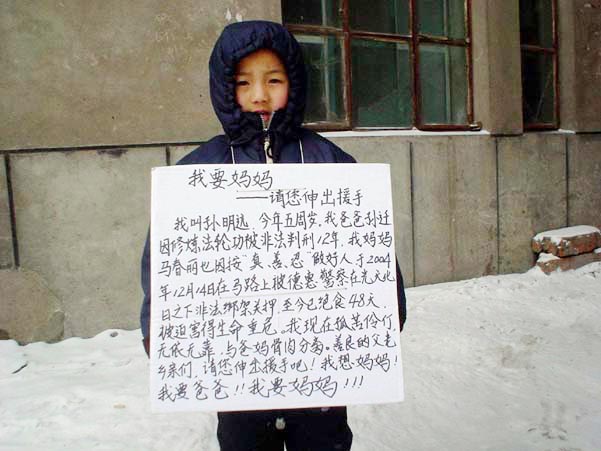 我要妈妈
——请您伸出援手
我叫孙明远，今年五周岁，我爸爸孙迁
因修炼法轮功被非法判刑12年，我妈妈
马春丽也因按“真、善、忍”做好人于2004
年12月14日在马路上被德惠警察在光天化
日之下非法绑架关押，至今已绝食48天，
被迫害得生命重危。我现在孤苦伶仃，
无依无靠，与爸妈骨肉分离。善良的父老
乡亲们，请您伸出援手吧！我想妈妈！
我要爸爸！！我要妈妈！！！